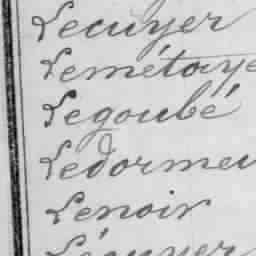 Lecuyer
Lemétaye
Legoubé
Ledormeu
Lenoir
Lécuyer